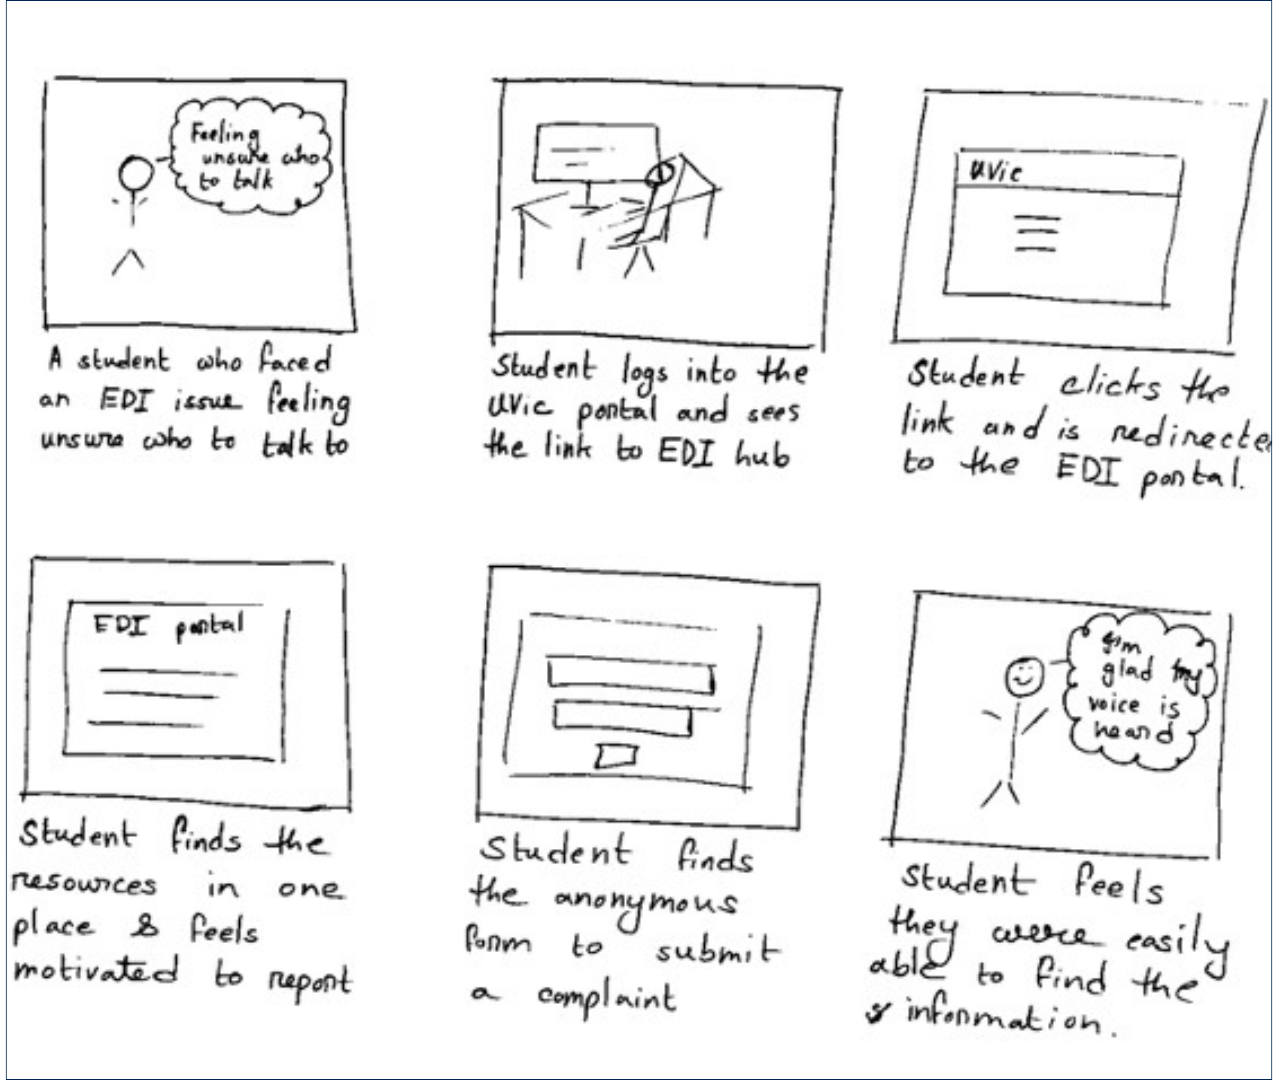 Feeling
unsure who
to talk
A student who faced
an EDI issue feeling
unsure who to talk to
Student logs into the
UVic portal and sees
the link to EDI hub
UVic
Student clicks the
link and is redirecte
to the EDI portal.
EDI portal
Student finds the
resources in one
place & feels
motivated to report
Student finds
the anonymous
form to submit
a complaint
I'm
glad my
voice is
heard
Student feels
they were easily
able to find the
information.